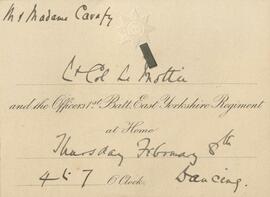 Mr & Madame Cavafy
Lt Col Le Mottée
and the Officers 1st Batt. East Yorkshire Regiment
at Home
Thursday February 8th
4 to 7 O'Clock. Dancing.